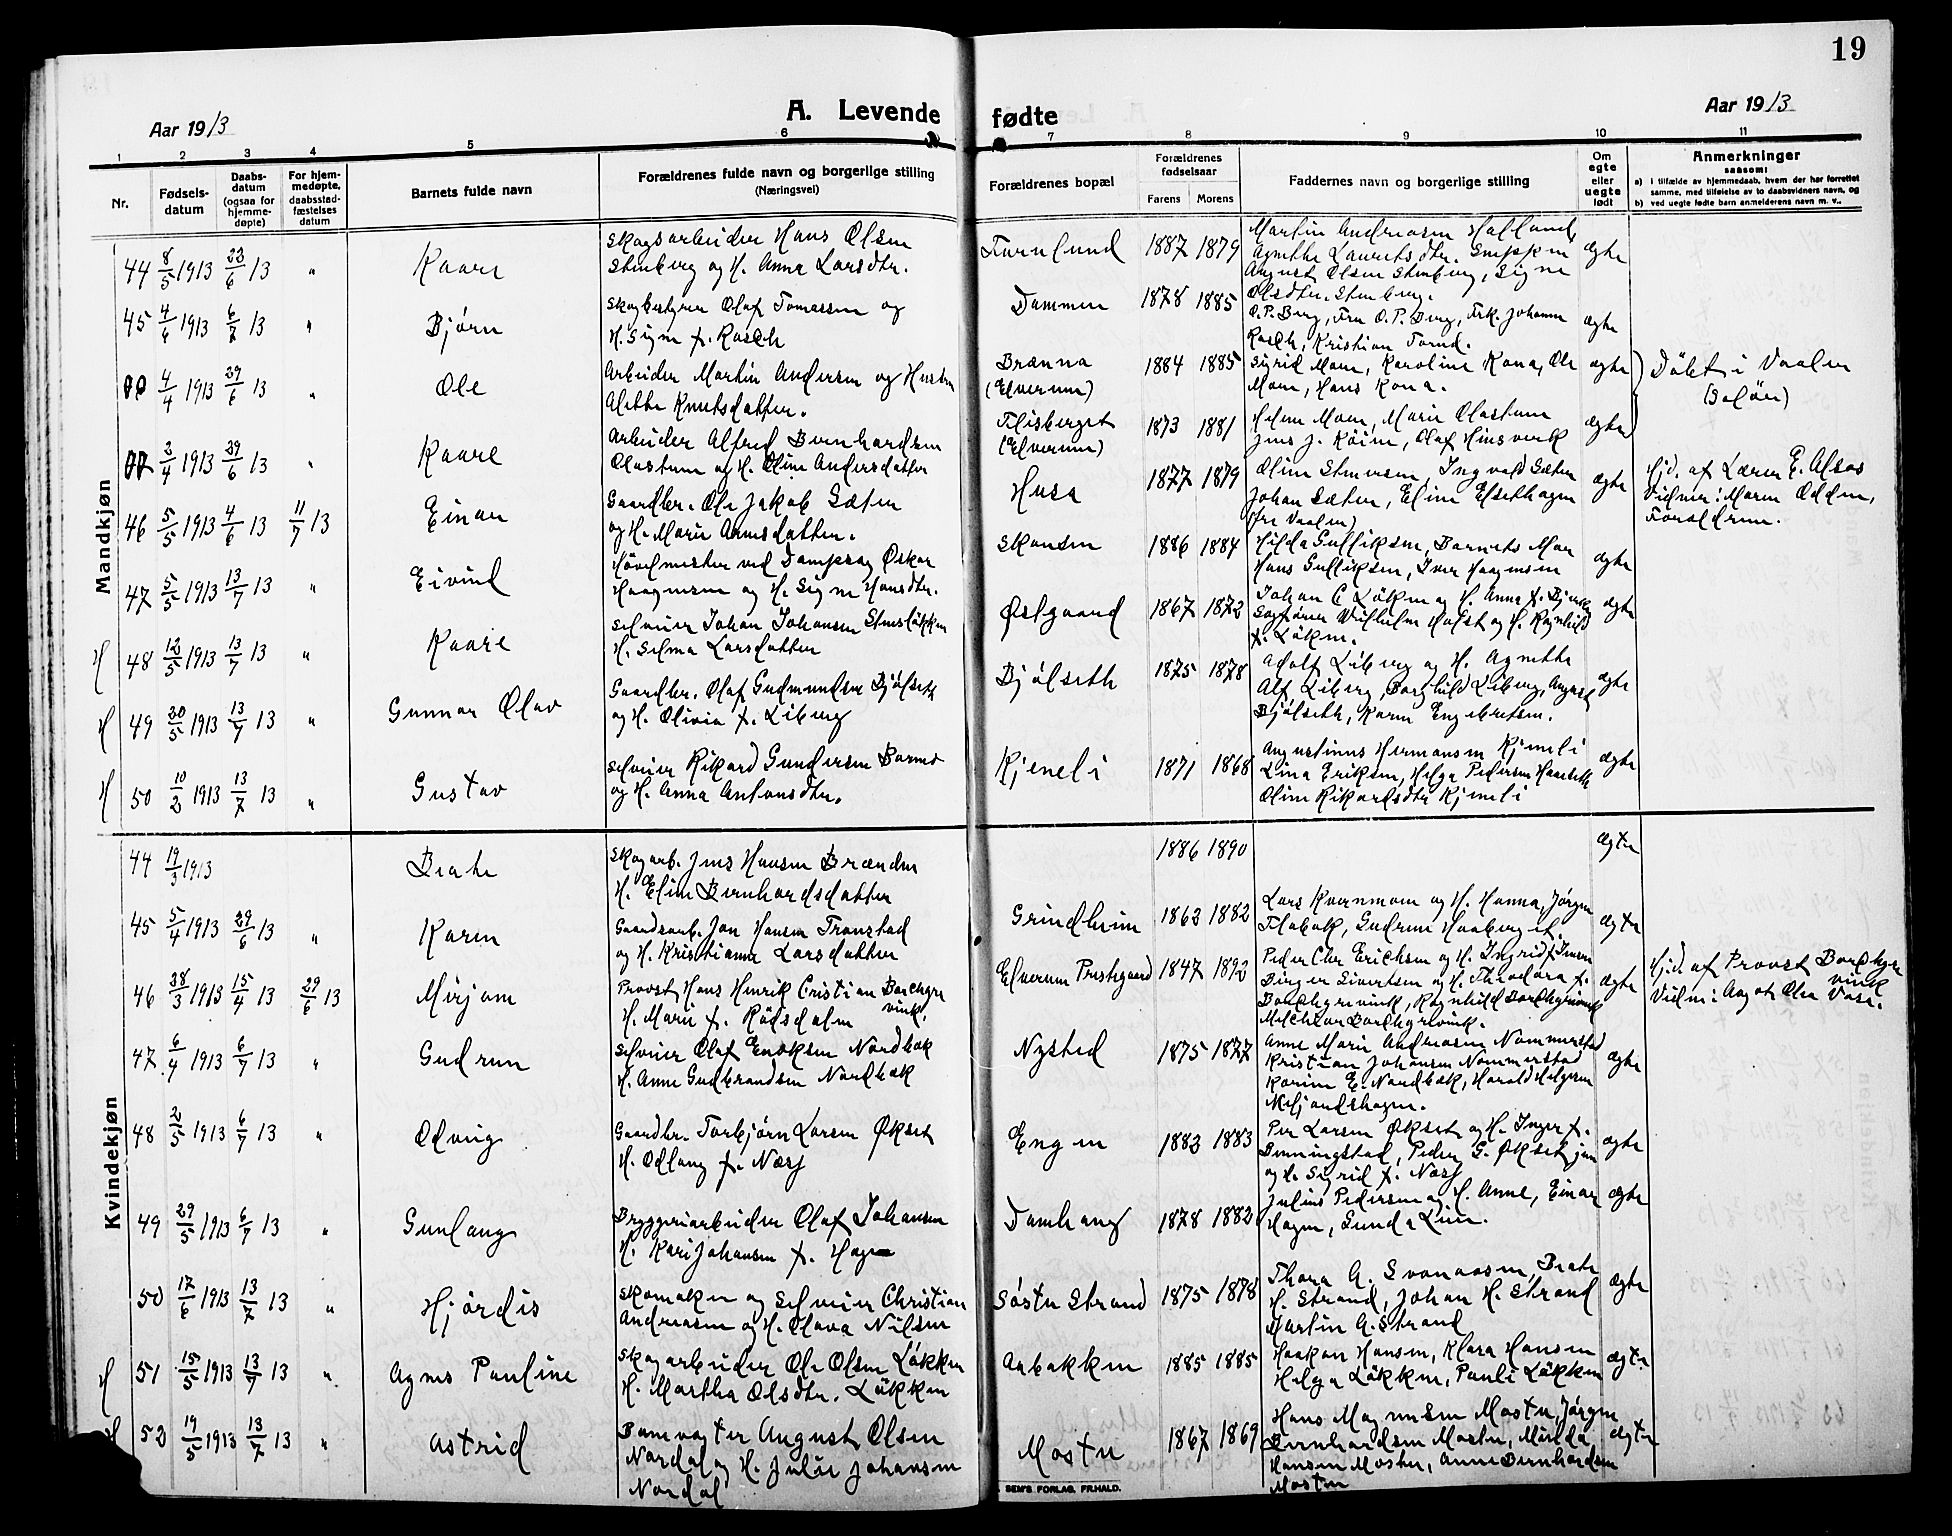 19
A. Levende fødte
Aar 1913
Aar 1913
1 2 3 4 5 6 7 8 9 10 11
Nr.
Fødsels-
datum
Daabs-
datum
(ogsaa for
hjemme-
døpte)
For hjem-
medøpte,
daabsstad-
fæstelses
datum
Barnets fulde navn
Forældrenes fulde navn og borgerlige stilling
(Næringsvei)
Forældrenes bopæl
Forældrenes
fødselsaar
Farens Morens
Faddernes navn og borgerlige stilling
Om
egte
eller
uegte
født
Anmerkninger
saasom:
a) i tilfælde av hjemmedaab, hvem der har forrettet
samme, med tilføielse av to daabsvidners navn, og
b) ved uegte fødte barn anmelderens navn m. v..
Mandkjøn
44 8/5 1913 22/6 13 " Kaare
Skogsarbeider Hans Olsen
Stenberg og H. Anna Larsdtr.
Furulund 1887 1879
Martin Andreasen
Agnethe Lauritsdtr.
August Olsen Stenberg, Signe
Olsdtr. Stenberg.
ægte
45 4/6 1913 6/7 13 " Bjørn
Skogbestyrer Olaf Tomassen og
H. Signe f. Rasch
Dammen 1878 1885
O. P. Berg, Fru O. P. Berg, Frk. Johanne
Rasch, Kristian
ægte
4/4 1913 29/6 13 " Ole
Arbeider Martin Andersen og Hustru
Alethe Knutsdatter.
Brænna
(Elverum)
1884 1885
Sigrid Moen, Karoline Kona, Ole
Moen, Hans Kona.
ægte
Døbt i Vaaler
(Solør)
3/4 1913 29/6 13 " Kaare
Arbeider Alfred Bernhardsen
Olastuen og H. Oline Andersdatter
Flisberget
(Elverum)
1873 1881
Helene Moen, Marie Olastuen
Jens J. Olaf
ægte
46 5/5 1913 4/6 13 11/7 13 Einar
Gaardbr. Ole Jakob Sæter
og H. Marie
Husa 1877 1879
Oline Stenersen, Ingvald Sæter
Johan Sæter, Eline
(fra Vaaler)
ægte
Hjd. af Lærer E. Alsos
Vidner: Maren Odden,
Forældrene.
47 5/5 1913 13/7 13 " Eivind
Høvelmester ved Dampsag Oskar
Haagensen og H. Signe Hansdtr.
Skansen 1886 1884
Hilda Gulliksen, Barnets Mor
Hans Gulliksen, Iver Haagensen
ægte
H 48 12/5 1913 13/7 13 " Kaare
Selveier Johan Johansen Stensløkken
H. Selma Larsdatter
Østgaard 1867 1872
Johan C Løken og H. Anna f.
Sagfører Vilhelm Holst og H. Ragnhild
f. Løken.
ægte
H 49 20/5 1913 13/7 13 " Gunnar Olav
Gaardbr. Olaf Gudmundsen Bjølseth
og H. Olivia f. Liberg
Bjølseth 1875 1878
Adolf Liberg og H. Agnethe
Alf Liberg, Borghild Liberg, August
Bjølseth, Karen Engebretsen.
ægte
H 50 10/2 1913 13/7 13 " Gustav
Selveier Rikard Gundersen
og H. Anna Antonsdtr.
Kjeneli 1871 1868
Augustinus Hermansen Kjeneli
Lina Eriksen, Helga Pedersen
Oline Rikardsdtr Kjeneli
ægte
Kvindekjøn
44 19/3 1913 Beate
Skogarb. Jens Hansen Brænden
H. Eline Bernhardsdatter
1886 1890
ægte
45 5/4 1913 29/6 13 " Karen
Gaardsarb. Jon Hansen Tronstad
og H. Kristianne Larsdatter
Grindheim 1862 1882
Lars Kvernmoen og H. Hanna, Jørgen
Flobak, Gudrun Haaberget.
ægte
46 28/3 1913 15/4 13 29/6 13 Mirjam
Provst Hans Henrik Cristian Borchgre
vink.
H. Marie f. Rødsdalm
Elverum Prestegaard 1847 1892
Peder Chr Erichsen og H. Ingrid f.
Birger Sivertsen og H. Theodora f.
Borchgrevink, Ragnhild Borchgrevink
Melchior Borchgrevink.
ægte
Hjd. af Provst Borchgre
vink
Vidne: Aagot Olea
47 6/4 1913 6/7 13 " Gudrun
Selveier Olaf Enoksen Nordbæk
H. Anne Gudbrandsen Nordbæk
Nysted 1875 1877
Anne Marie Andreasen Nommerstad
Kristian Johansen Nommerstad
Karine E. Nordbæk, Harald Helgesen
ægte
48 2/5 1913 6/7 13 " Odveig
Gaardbr. Torbjørn Larsen Økset
H. Odlaug f. Næss
Engen 1883 1883
Per Larsen Økset og H. Inger f.
Benningstad, Peder G. Økset jun
og h. Sigrid f. Næss
ægte
49 29/5 1913 6/7 13 " Gunlaug
Bryggeriarbeider Olaf Johansen
H. Kari Johansen f. Hagen
Damhaug 1878 1882
Julius Pedersen og H. Anne, Einar
Hagen, Gunda Lien.
ægte
50 17/6 1913 13/7 13 " Hjørdis
Skomaker og Selveier Christian
Andreasen og H. Olava Nilsen
Søstu Strand 1875 1878
Thora A. Svenaasen, Beate
H. Strand, Johan H. Strand
Martin A. Strand
ægte
H 51 15/5 1913 13/7 13 " Agnes Pauline
Skogarbeider Ole Olsen Løkken
H. Martha Olsdtr. Løkken
Aabakken 1885 1885
Haakon Hansen, Klara Hansen
Helga Løkken, Pauli Løkken
ægte
H 52 19/5 1913 13/7 13 " Astrid
Banevogter August Olsen
Nordal og H. Julie Johansen
Nordal
Mostu 1867 1869
Hans Magnusen Mostu, Jørgen
Bernhardsen Mostu, Milda
Hansen Mostu, Anne Bernhardsen
Mostu
ægte
SEM'S FORLAG, FR.HALD.